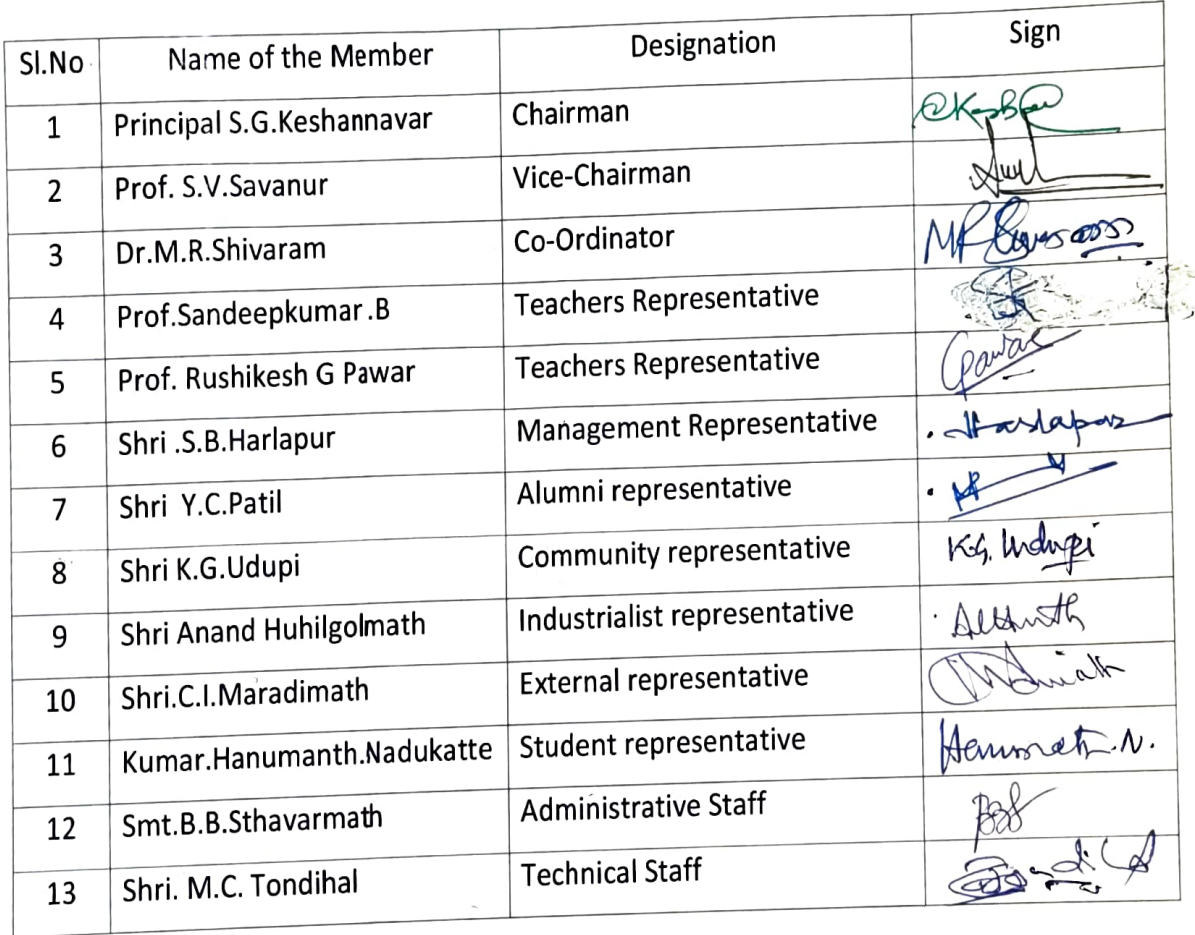 Sl.No Name of the Member Designation Sign
1 Principal S.G.Keshannavar Chairman
2 Prof. S.V.Savanur Vice-Chairman
3 Dr.M.R.Shivaram Co-Ordinator
4 Prof.Sandeepkumar.B Teachers Representative
5 Prof. Rushikesh G Pawar Teachers Representative Gpawar
6 Shri .S.B.Harlapur Management Representative Harlapur
7 Shri Y.C.Patil Alumni representative
8 Shri K.G.Udupi Community representative K.G. Udupi
9 Shri Anand Huhilgolmath Industrialist representative
10 Shri.C.I.Maradimath External representative
11 Kumar.Hanumanth.Nadukatte Student representative
12 Smt.B.B.Sthavarmath Administrative Staff
13 Shri. M.C. Tondihal Technical Staff